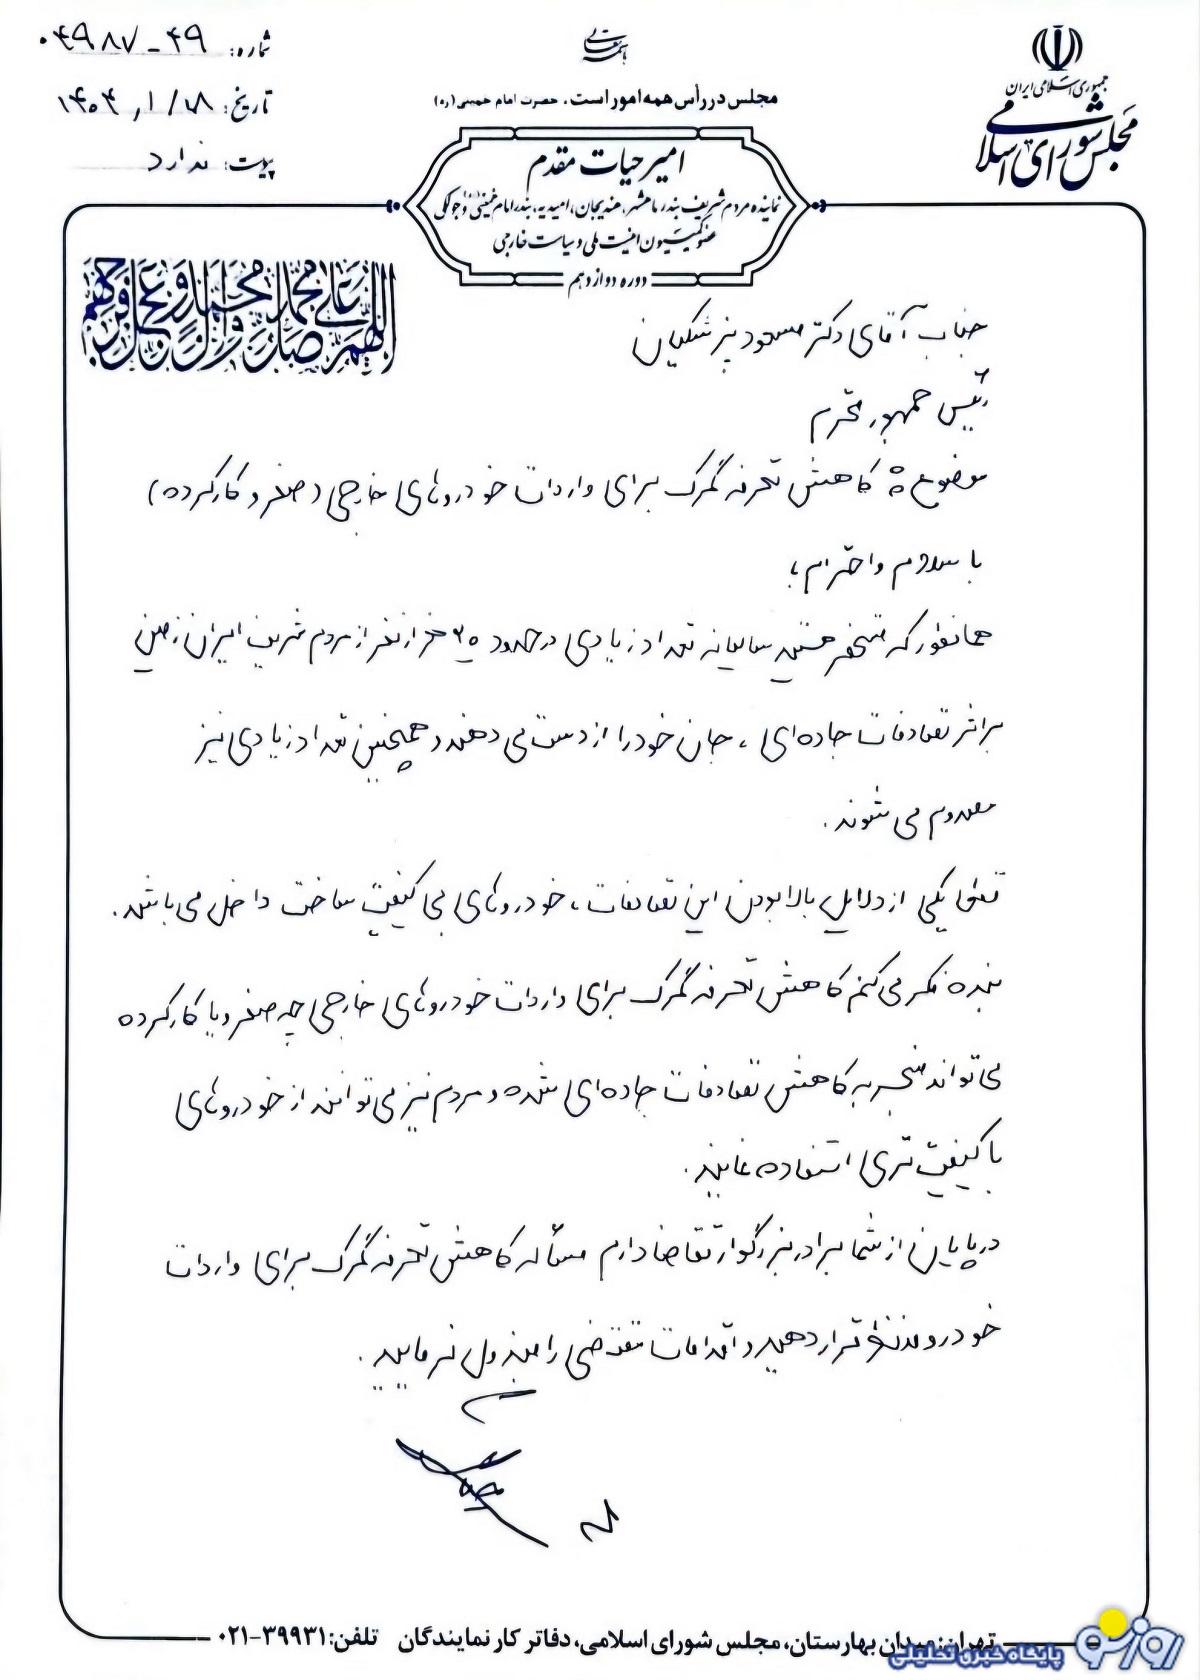 باسمه تعالی
شماره: ۴۹-۰۴۹۸۷
تاریخ: ۱۴۰۴/۱/۱۸
پیوست: ندارد
جمهوری اسلامی ایران
مجلس شورای اسلامی
مجلس در رأس همه امور است، حضرت امام خمینی (ره)
امیر حیات مقدم
نماینده مردم شریف بندر ماهشهر، هندیجان، امیدیه، بندر امام خمینی (ره) و جولکی
عضو کمیسیون امنیت ملی و سیاست خارجی
دوره دوازدهم
اللهم صل علی محمد و آل محمد و عجل فرجهم
جناب آقای دکتر مسعود پزشکیان
رئیس جمهور محترم
موضوع: کاهش تعرفه گمرک برای واردات خودروهای خارجی (صفر و کارکرده)
با سلام و احترام؛
همانطور که مستحضر هستید سالیانه تعداد زیادی در حدود ۲۰ هزار نفر از مردم شریف ایران زمین
براثر تصادفات جاده‌ای، جان خود را از دست می دهند و همچنین تعداد زیادی نیز
مصدوم می شوند.
قطعا یکی از دلایل بالا بودن این تصادفات، خودروهای بی کیفیت ساخت داخل می باشد.
بنده فکر می کنم کاهش تعرفه گمرک برای واردات خودروهای خارجی چه صفر و یا کارکرده
می تواند منجر به کاهش تصادفات جاده‌ای شده و مردم نیز می توانند از خودروهای
با کیفیت تری استفاده نمایند.
در پایان از شما برادر بزرگوار تقاضا دارم مسأله کاهش تعرفه گمرک برای واردات
خودرو مدنظر قرار دهید و اقدامات مقتضی را مبذول فرمایید.
تهران: میدان بهارستان، مجلس شورای اسلامی، دفاتر کار نمایندگان تلفن: ۳۹۹۳۱-۰۲۱
روز نو
پایگاه خبری تحلیلی